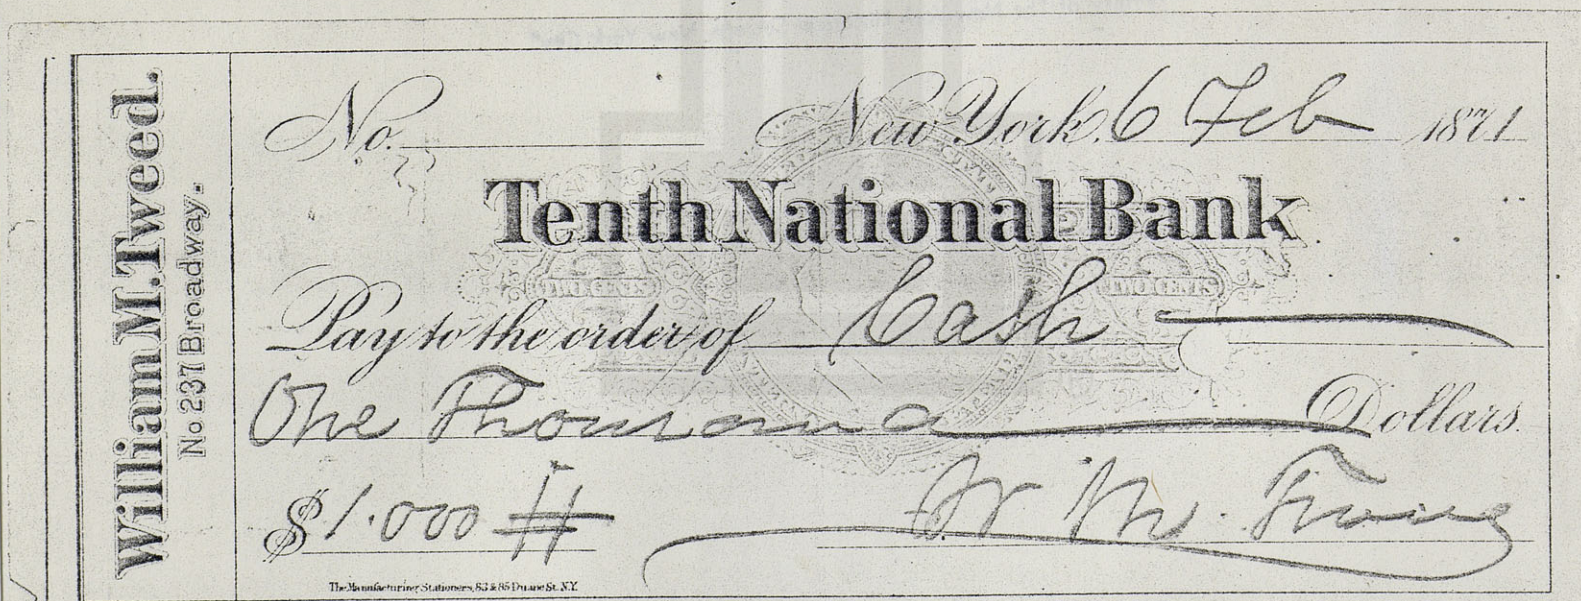 William M. Tweed.
No 237 Broadway.
No.
New York. 6 Feb 1871
Tenth National Bank
TWO CENTS TWO CENTS
Pay to the order of Cash
One Thousand Dollars.
$1.000
W M. Tweed
The Manufacturing Stationers, 83 & 85 Duane St. N.Y.